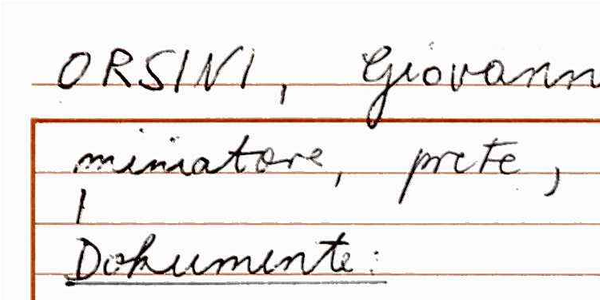 ORSINI, Giovann
miniatore, prete,
Dokumente: